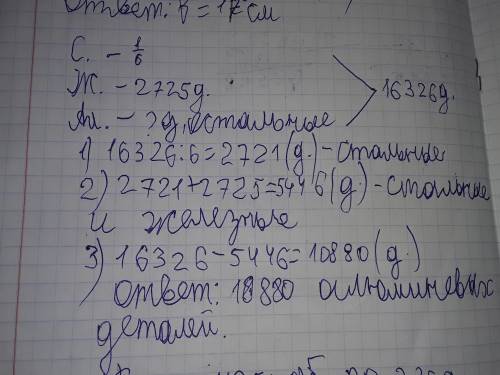 Ответ: в = 17 см
С. - 1/6
Ж. - 2725д.
Ал. - ?д, остальные
16326д.
1) 16326:6=2721(д.)-стальные
2) 2721+2725=5446(д.)-стальные
и железные
3) 16326-5446=10880(д.)
Ответ: 10880 алюминевых
деталей.